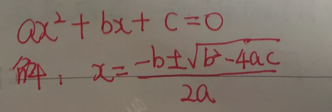 ax² + bx + c = 0
解: x = \frac{-b±\sqrt{b²-4ac}}{2a}